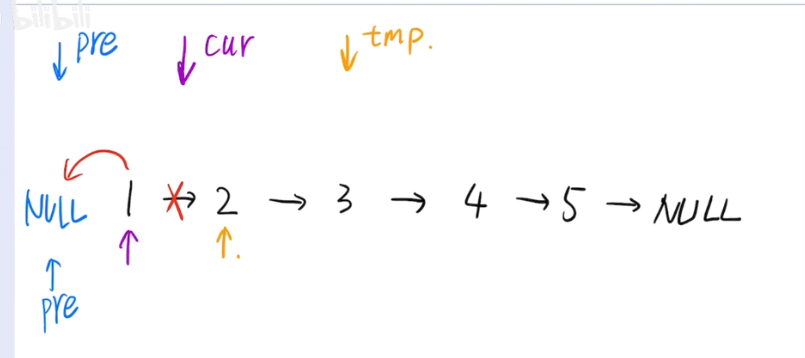 bilibili
pre cur tmp.
NULL 1 → 2 → 3 → 4 → 5 → NULL
pre